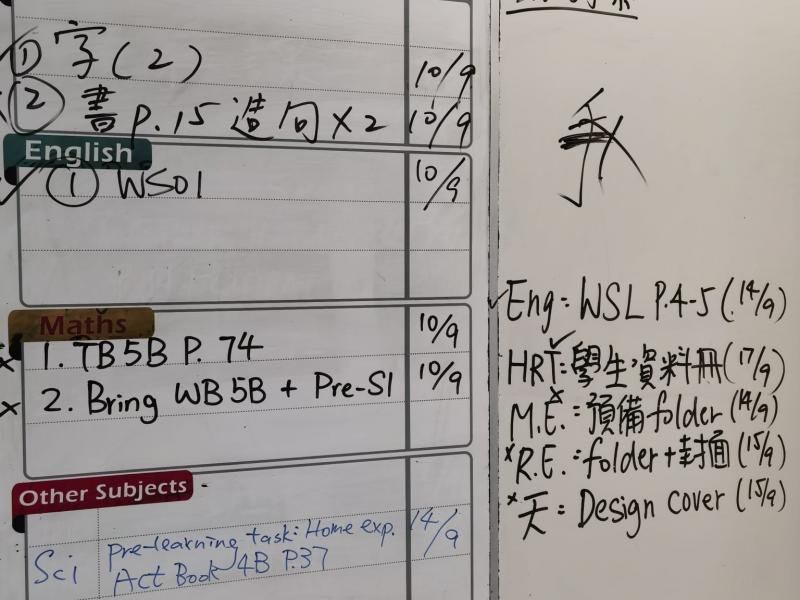 ① 字(2) 10/9
② 書 P.15 造句 x2 10/9
English
① WS01 10/9
Maths
1. TB5B P. 74 10/9
2. Bring WB 5B + Pre-S1 10/9
Other Subjects
Sci Pre-learning task: Home exp. 14/9
Act Book 4B P.37
我
Eng: WSL P.4-5 (14/9)
HRT: 學生資料冊 (17/9)
M.E.: 預備 folder (14/9)
R.E.: folder + 封面 (15/9)
天: Design cover (15/9)